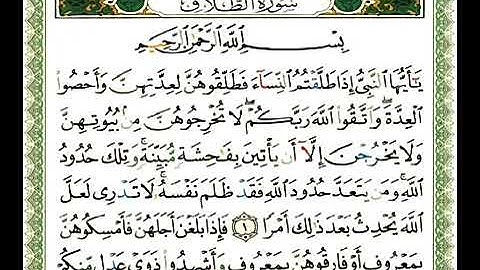 سُورَةُ الطَّلَاقِ
بِسْمِ اللَّهِ الرَّحْمَٰنِ الرَّحِيمِ
يَٰٓأَيُّهَا النَّبِىُّ إِذَا طَلَّقْتُمُ النِّسَآءَ فَطَلِّقُوهُنَّ لِعِدَّتِهِنَّ وَأَحْصُوا۟
الْعِدَّةَ ۖ وَاتَّقُوا۟ اللَّهَ رَبَّكُمْ ۖ لَا تُخْرِجُوهُنَّ مِنۢ بُيُوتِهِنَّ
وَلَا يَخْرُجْنَ إِلَّآ أَن يَأْتِينَ بِفَٰحِشَةٍ مُّبَيِّنَةٍ ۚ وَتِلْكَ حُدُودُ
اللَّهِ ۚ وَمَن يَتَعَدَّ حُدُودَ اللَّهِ فَقَدْ ظَلَمَ نَفْسَهُۥ ۚ لَا تَدْرِى لَعَلَّ
اللَّهَ يُحْدِثُ بَعْدَ ذَٰلِكَ أَمْرًا ١ فَإِذَا بَلَغْنَ أَجَلَهُنَّ فَأَمْسِكُوهُنَّ
بِمَعْرُوفٍ أَوْ فَارِقُوهُنَّ بِمَعْرُوفٍ وَأَشْهِدُوا۟ ذَوَىْ عَدْلٍ مِّنكُمْ